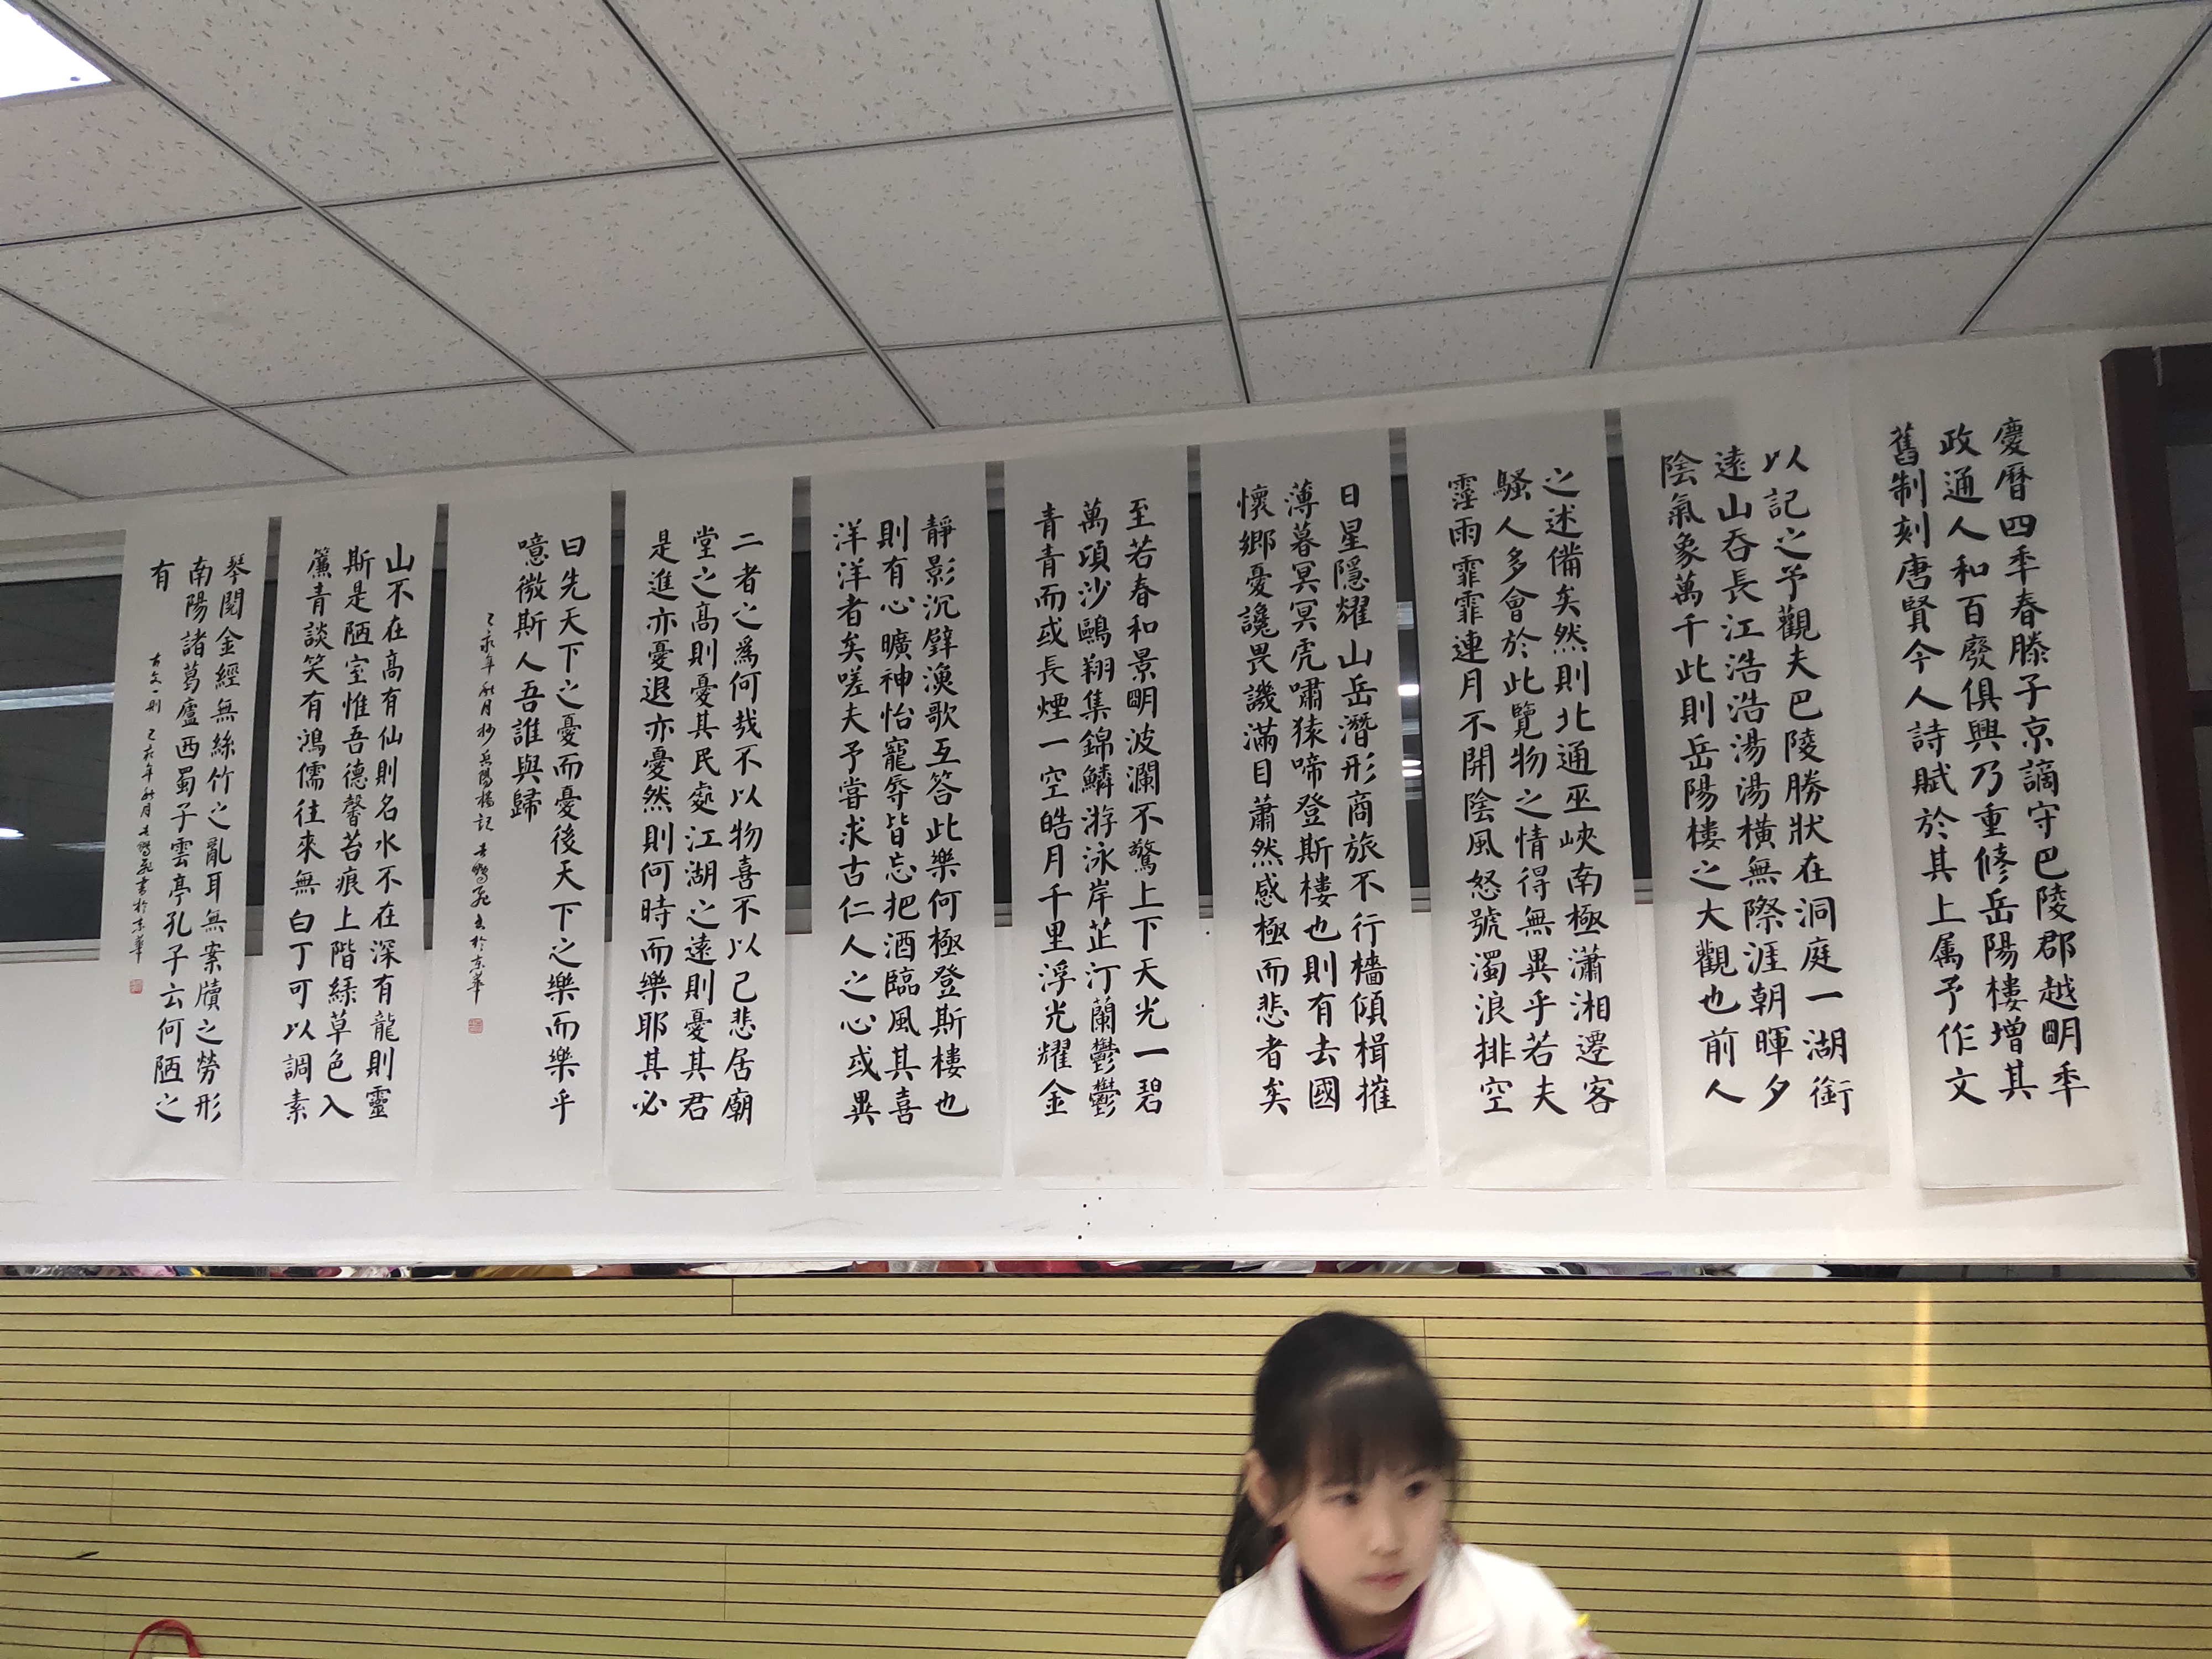 慶曆四年春滕子京謫守巴陵郡越明年
政通人和百廢俱興乃重修岳陽樓增其
舊制刻唐賢今人詩賦於其上属予作文
以記之予觀夫巴陵勝狀在洞庭一湖銜
遠山吞長江浩浩湯湯橫無際涯朝暉夕
陰氣象萬千此則岳陽樓之大觀也前人
之述備矣然則北通巫峽南極瀟湘遷客
騷人多會於此覽物之情得無異乎若夫
霪雨霏霏連月不開陰風怒號濁浪排空
日星隱耀山岳潛形商旅不行檣傾楫摧
薄暮冥冥虎嘯猿啼登斯樓也則有去國
懷鄉憂讒畏譏滿目蕭然感極而悲者矣
至若春和景明波瀾不驚上下天光一碧
萬頃沙鷗翔集錦鱗游泳岸芷汀蘭鬱鬱
青青而或長煙一空皓月千里浮光耀金
靜影沉璧漁歌互答此樂何極登斯樓也
則有心曠神怡寵辱皆忘把酒臨風其喜
洋洋者矣嗟夫予嘗求古仁人之心或異
二者之爲何哉不以物喜不以己悲居廟
堂之高則憂其民處江湖之遠則憂其君
是進亦憂退亦憂然則何時而樂耶其必
曰先天下之憂而憂後天下之樂而樂乎
噫微斯人吾誰與歸
己亥年秋月抄岳陽樓記 書於京華
山不在高有仙則名水不在深有龍則靈
斯是陋室惟吾德馨苔痕上階緑草色入
簾青談笑有鴻儒往來無白丁可以調素
琴閱金經無絲竹之亂耳無案牘之勞形
南陽諸葛廬西蜀子雲亭孔子云何陋之
有
古文一則 己亥年秋月 書於京華